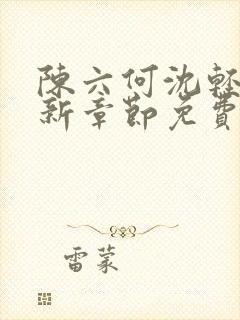 陳六何沈輕
新章節免費
雷蒙